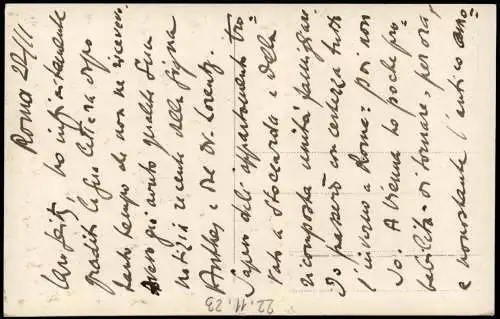 Roma 22/11
Caro ho infinitamente
gradito la sua lettera dopo
tanto tempo che non ne ricevevo.
Avevo già avuto qualche sua
notizia recente dalla Signa
e dal Dr. Lorentz.
Sapevo dell'appartamento tro-
vato a Stoccarda e della
ricomposta unità famigliare.
Io passerò con certezza tutto
l'inverno a Roma: poi non
so. A Vienna ho poche pro-
babilità di tornare, per ora,
e nonostante l'antico
22.11.23